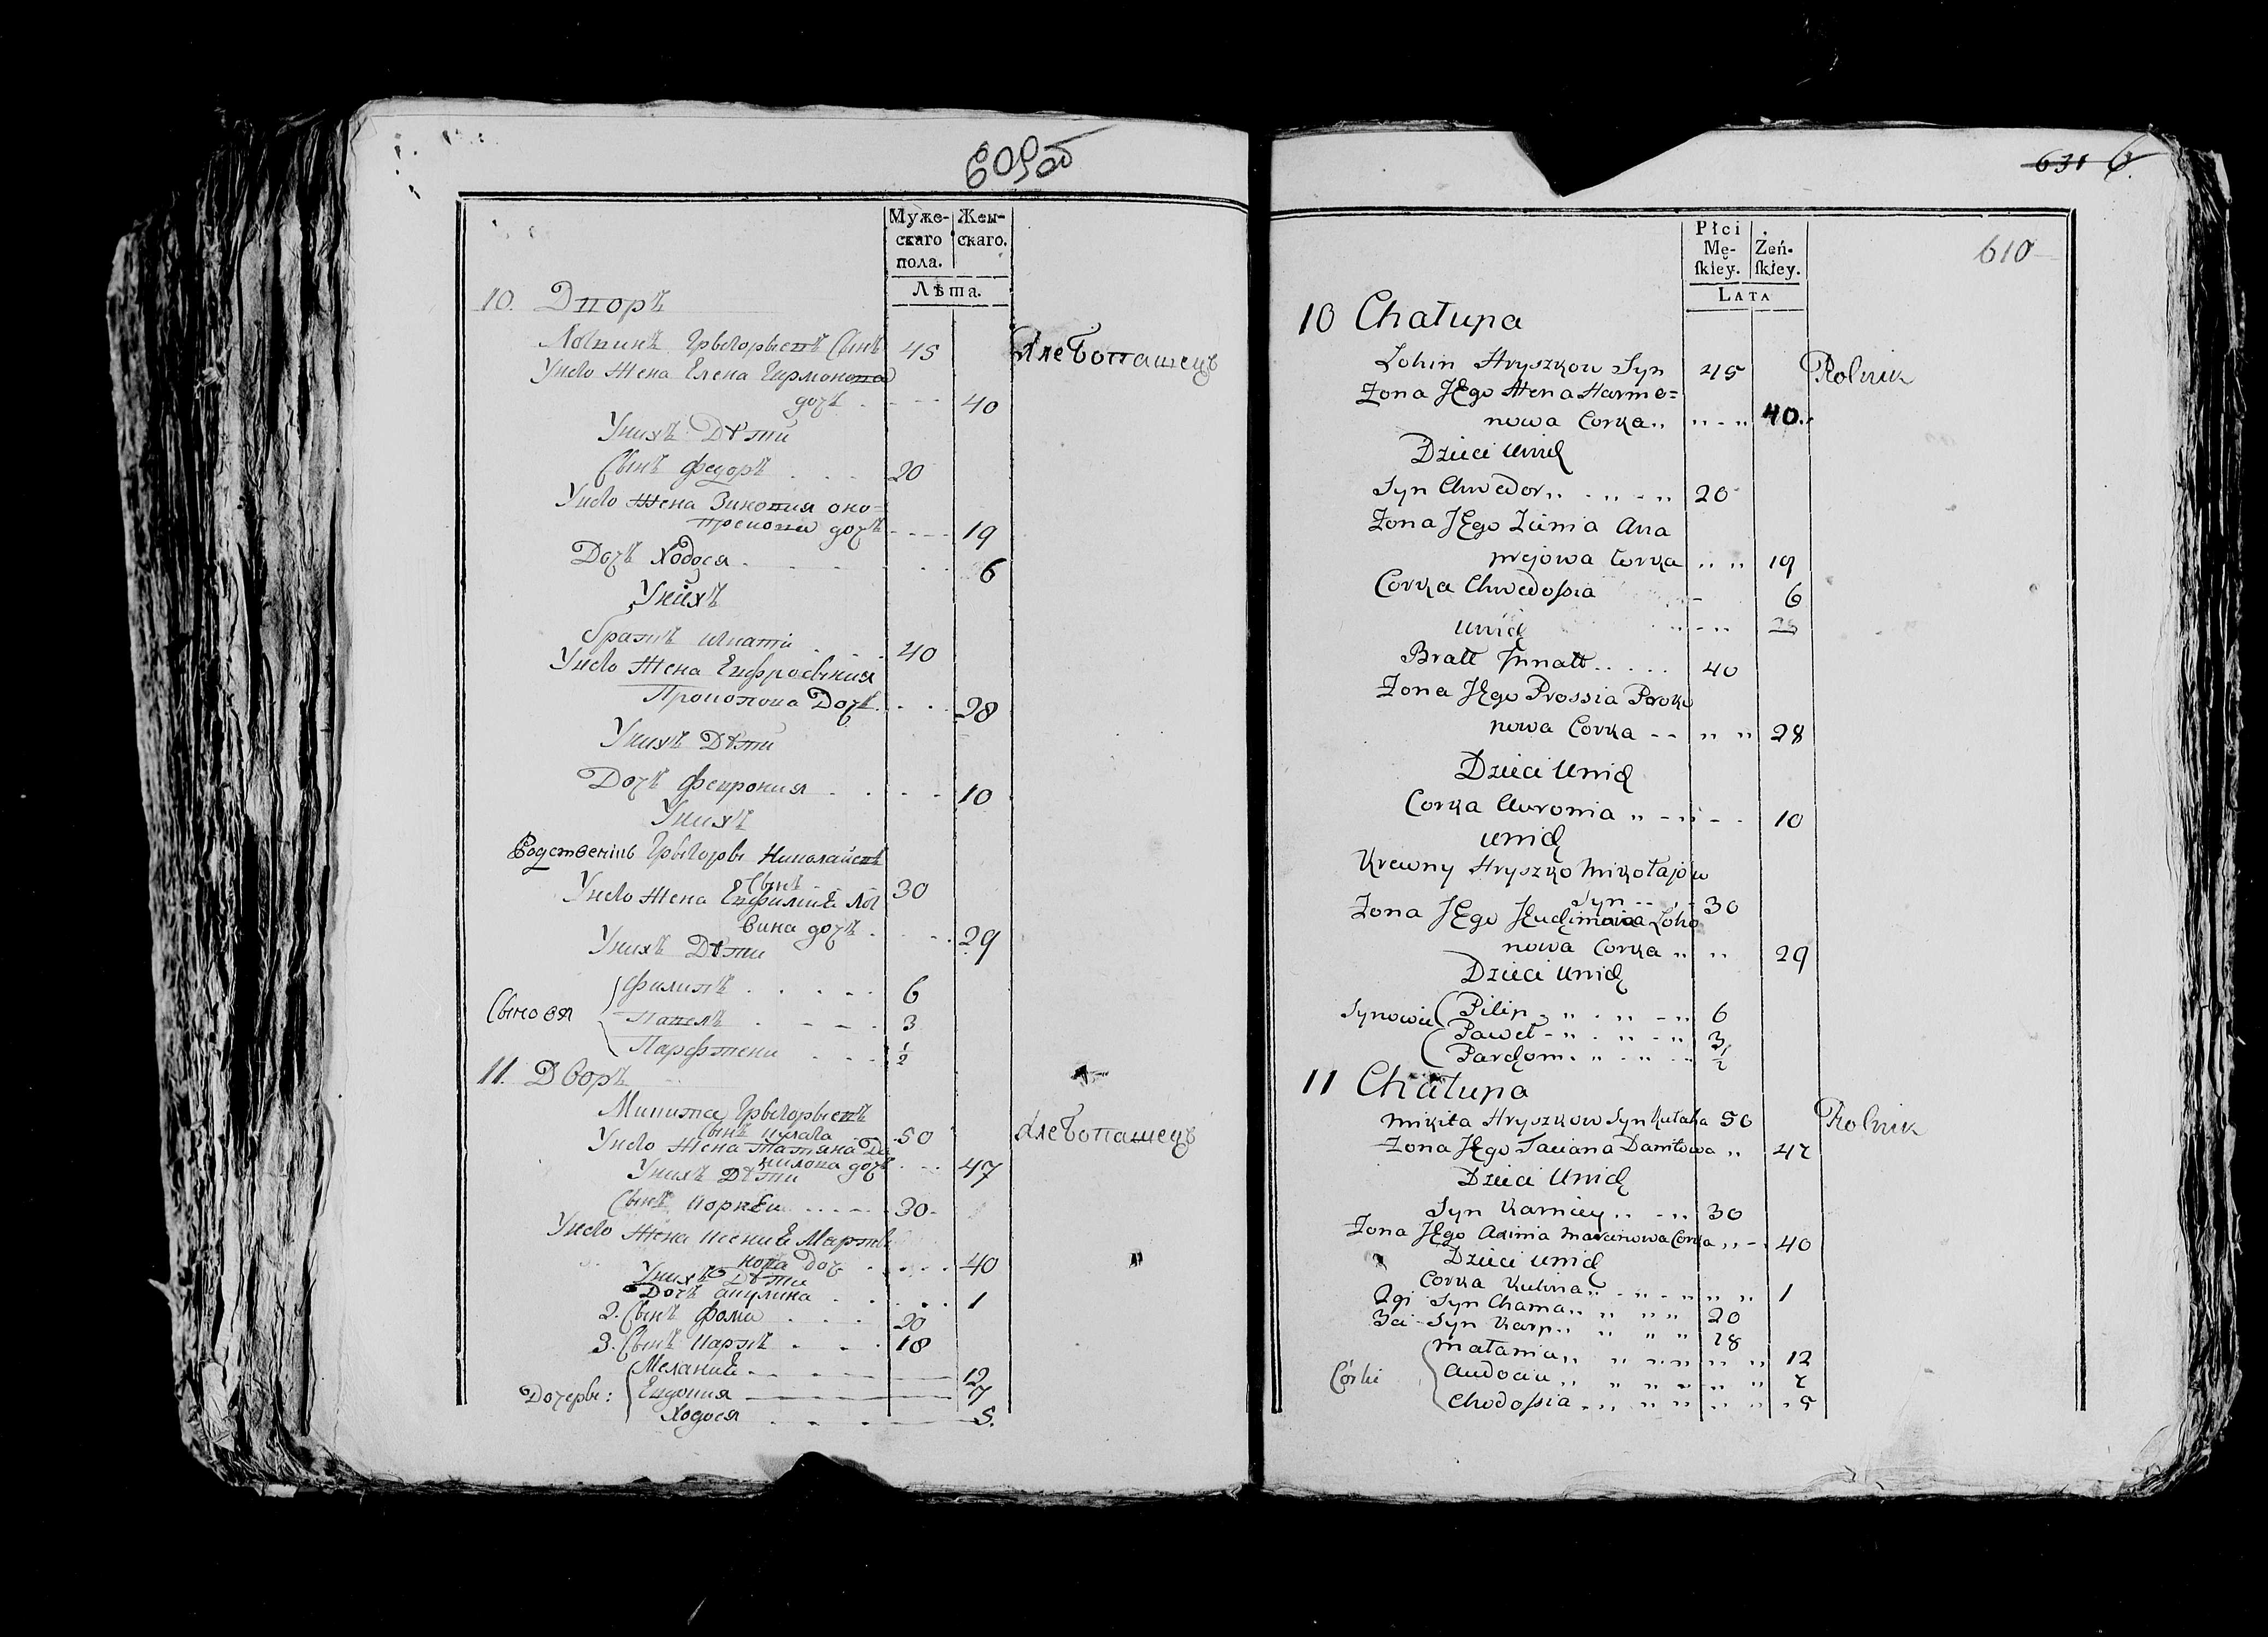 609об
Муже-
скаго
пола.
Жен-
скаго.
Лѣта.
10. Дворъ
Логвинъ Грыгорьевъ Сынъ 45 Хлебопашецъ
Унего Жена Елена Гармонова
дочь 40
Унихъ Дѣти
Сынъ Федоръ 20
Унего Жена Зиновия
дочъ 19
Дочъ Ходося 6
Унихъ
братъ Игнатій 40
Унего Жена Евфросѣния
Прокопова Дочъ 28
Унихъ Дѣти
Дочъ Феврония 10
Унихъ
Грыгоры Николаевъ
Сынъ 30
Унего Жена Евфимия Лог
вина дочъ 29
Унихъ Дѣти
Сыновя
Филипъ 6
Павелъ 3
Парфжени 1/2
11. Дворъ
Микита Грыгорьевъ
Сынъ Кулага 50 Хлебопашецъ
Унего Жена Татяна Да
нилова дочъ 47
Унихъ Дѣти
Сынъ Корнѣи 30
Унего Жена Ксения Марты
нова Доч 40
Унихъ Дѣти
Дочъ Акулина 1
2. Сынъ Фома 20
3. Сынъ Карпъ 18
Дочеры:
Мелания 12
Евдокия 7
Ходося 5.
631
610
Płci
Mę-
skiey.
Żeń-
skiey.
LATA
10 Chałupa
Lohin Hryszkow Syn 45 Rolnik
Zona Jego Hena Harmo=
nowa Corka 40
Dzieci unich
Syn Chwedor 20
Zona Jego Zienia
prejowa Corka 19
Corka Chwedossia 6
unich
Bratt Jhnatt 40
Zona Jego Prossia Proko
powa Corka 28
Dzieci Unich
Corka Awronia 10
unich
Krewny Hryszko Mikołajow
Syn 30
Zona Jego Jeudimia Loho
nowa Corka 29
Dzieci Unich
Synowie
Pilip 6
Paweł 3
Parchom 1/2
11 Chałupa
Mikita Hryszkow Syn Kułaha 50 Rolnik
Zona Jego Taciana Daniłowa 47
Dzieci Unich
Syn Karniey 30
Zona Jego Axinia Marcinowa Corka 40
Dzieci unich
Corka Kulina 1
2gi Syn Chama 20
3ci Syn Karp 18
Córki
Małania 12
Audocia 7
Chodossia 5